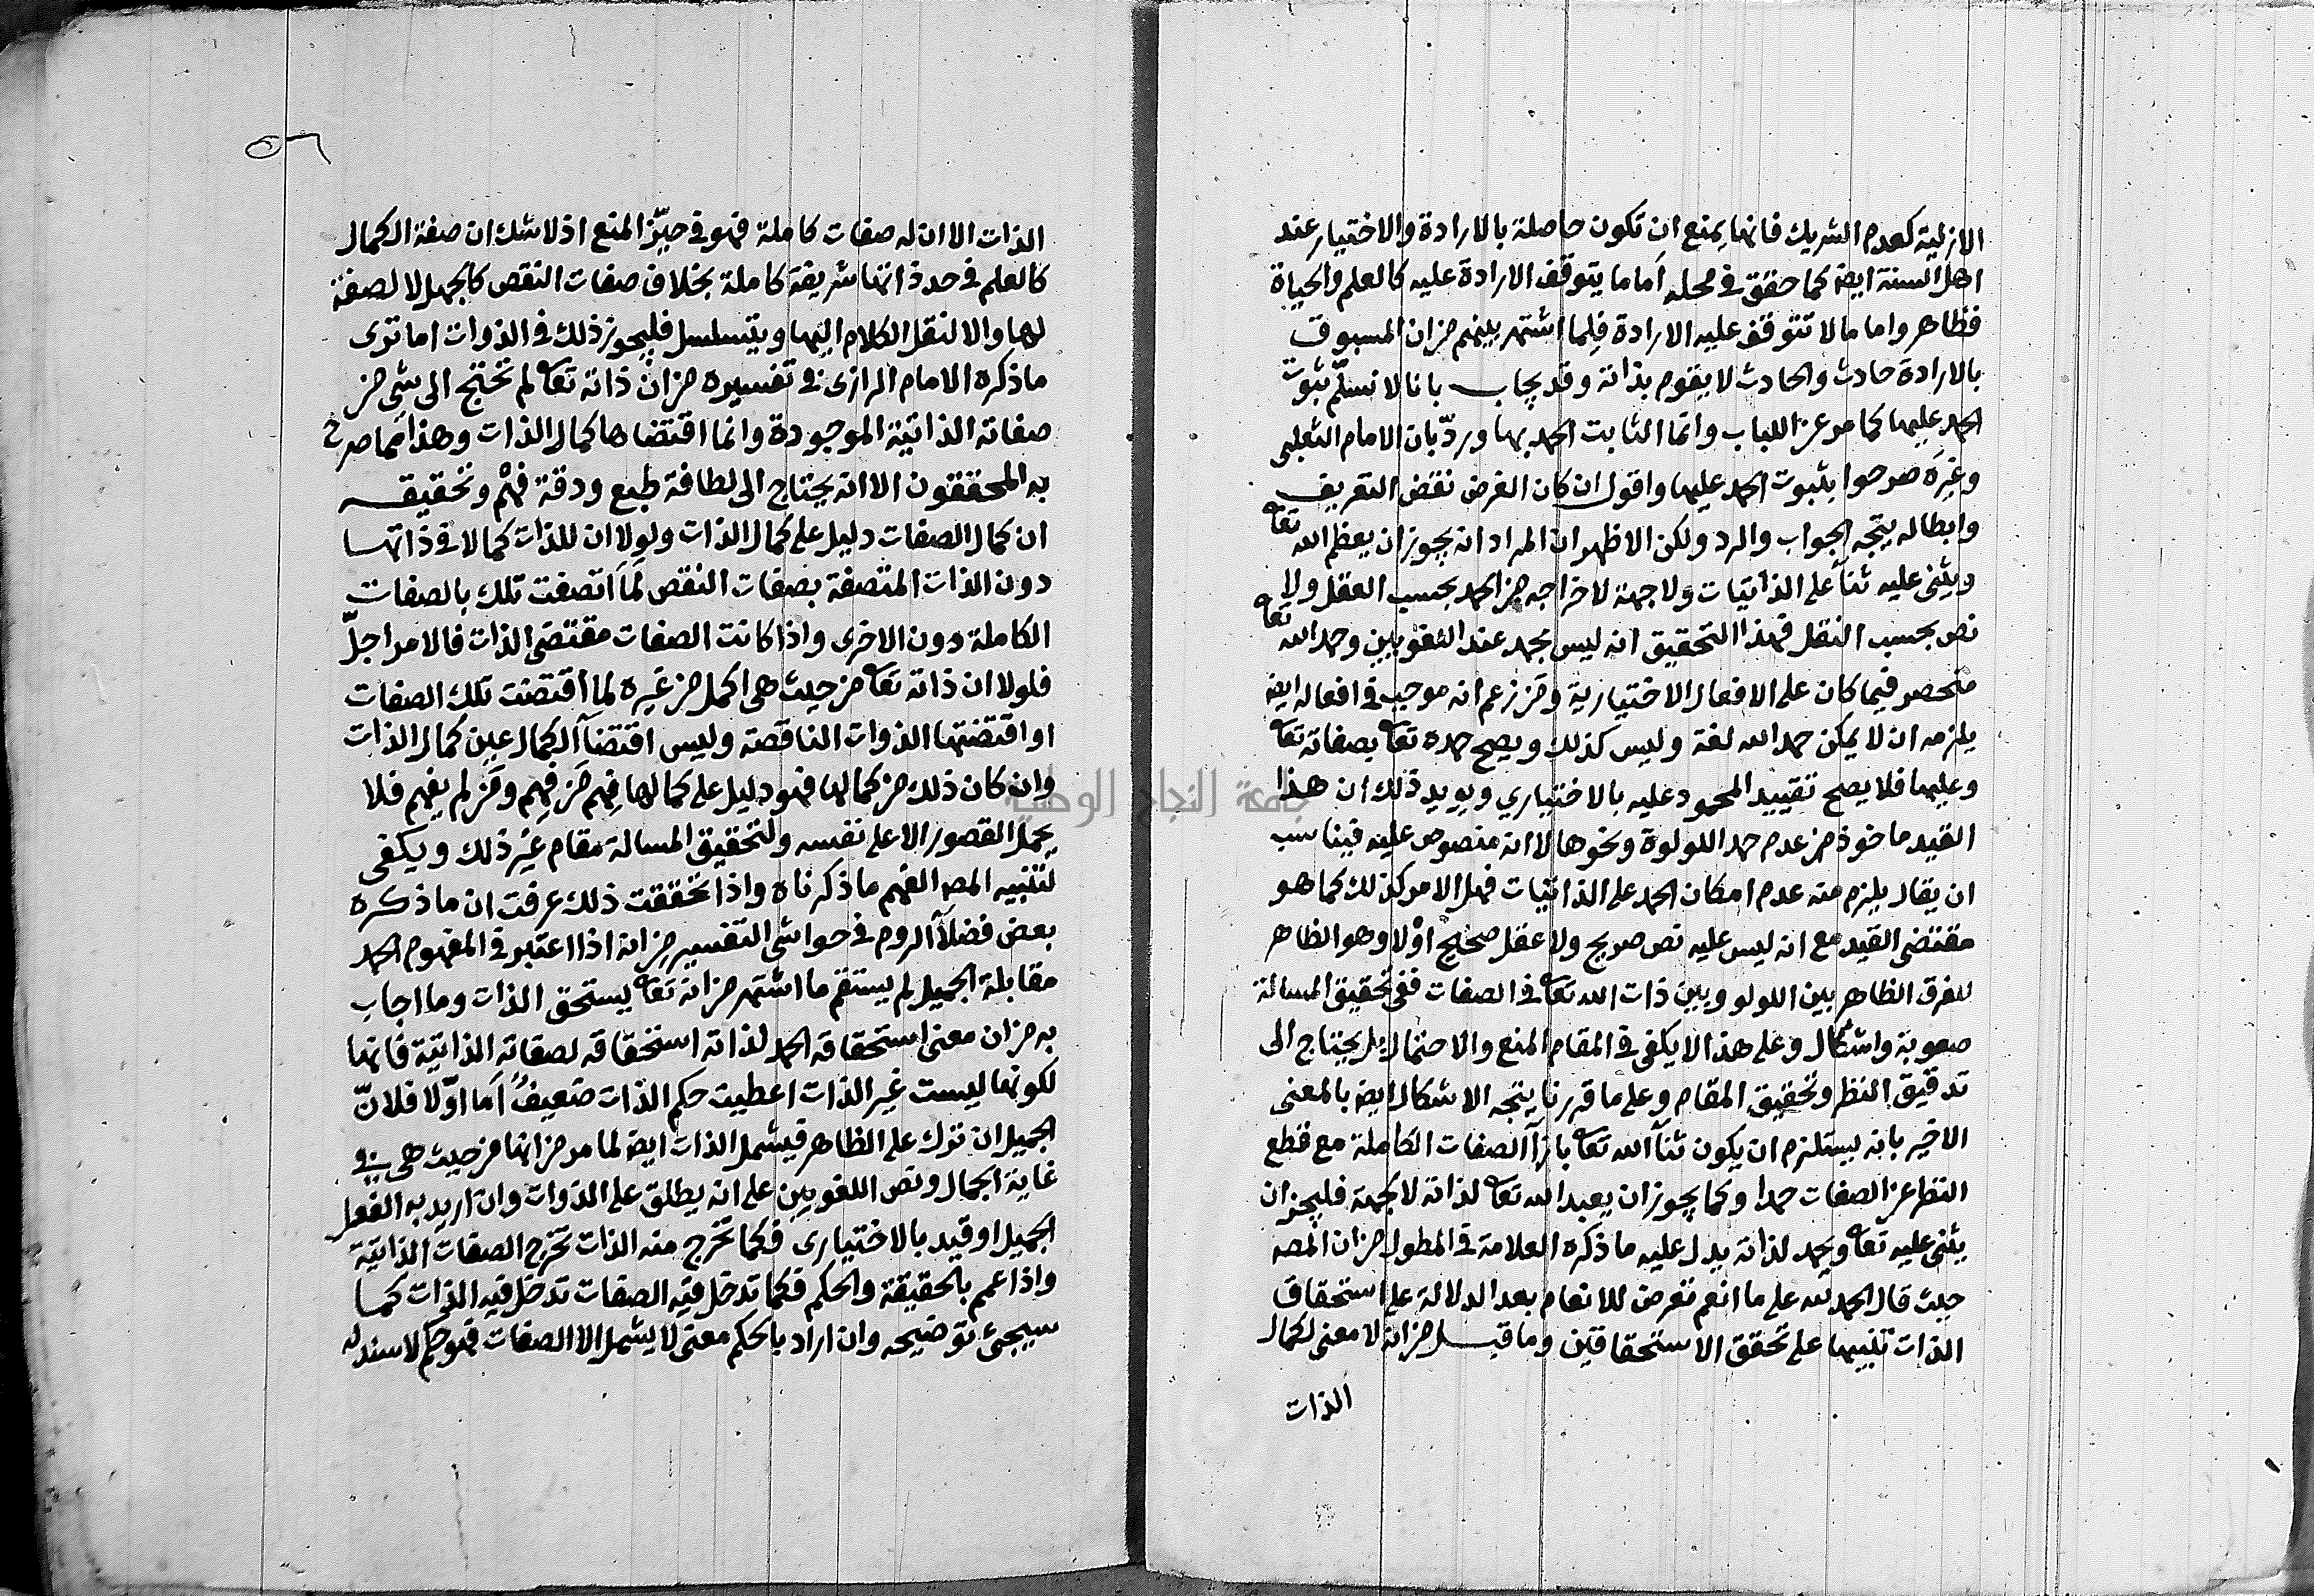 الازلية كعدم الشريك فانها يمنع ان تكون حاصلة بالارادة والاختيار عند
اهل السنة ايضا كما حقق في محله اما ما يتوقف الارادة عليه كالعلم والحياة
فظاهر واما ما لا تتوقف عليه الارادة فلما اشتهر بينهم من ان المسبوق
بالارادة حادث والحادث لا يقوم بذاته وقد يجاب بانا لا نسلم ثبوت
الحمد عليها كما مر عن اللباب وانما الثابت الحمد بها وردّ بان الامام الثعلبى
وغيره صرحوا بثبوت الحمد عليها واقول ان كان الغرض نقض التعريف
وابطاله يتجه الجواب والرد ولكن الاظهر ان المراد انه يجوز ان يعظم الله تعا
ويثنى عليه ثناء على الذاتيات ولا جهة لاخراجه من الحمد بحسب العقل ولا
نص بحسب النقل فهذا التحقيق انه ليس بحمد عند اللغويين وحمد الله تعا
منحصر فيما كان على الافعال الاختيارية ومن زعم انه موجب في افعاله ايضا
يلزمه ان لا يمكن حمد الله لغة وليس كذلك ويصح حمده تعا بصفاته تعا
وعليها فلا يصح تقييد المحمود عليه بالاختياري ويويد ذلك ان هذا
القيد ماخوذ من عدم حمد اللولوة ونحوها لا انه منصوص عليه فيناسب
ان يقال يلزم منه عدم امكان الحمد على الذاتيات فهل الامر كذلك كما هو
مقتضى القيد مع انه ليس عليه نص صريح ولا عقل صحيح اوْلا وهو الظاهر
للفرق الظاهر بين اللولو وبين ذات الله تعا في الصفات ففي تحقيق المسالة
صعوبة واشكال وعلى هذا لا يكفى في المقام المنع والاحتمال بل يحتاج الى
تدقيق النظر وتحقيق المقام وعلى ما قررنا يتجه الاشكال ايضا بالمعنى
الاخير بانه يستلزم ان يكون ثناء الله تعا بازاء الصفات الكاملة مع قطع
النظر عن الصفات حمدا وكما يجوز ان يعبد الله تعا لذاته لا لجهة فليجز ان
يثنى عليه تعا ويحمد لذاته يدل عليه ما ذكره العلامة في المطول من ان المص
حيث قال الحمد لله على ما انعم تعرض للانعام بعد الدلالة على استحقاق
الذات تنبيها على تحقق الاستحقاقين وما قيل من انه لا معنى لكمال
الذات
٥٦
الذات الا ان له صفات كاملة فهو في حيّز المنع اذ لا شك ان صفة الكمال
كالعلم في حد ذاتها شريفة كاملة بخلاف صفات النقص كالجهل لا لصفة
لها والا لنقل الكلام اليها ويتسلسل فليجوز ذلك في الذوات اما ترى
ما ذكره الامام الرازى في تفسيره من ان ذاته تعا لم تحتج الى شى من
صفاته الذاتية الموجودة وانما اقتضاها كمال الذات وهذا مما صرح
به المحققون الا انه يحتاج الى لطافة طبع ودقة فهْم وتحقيقه
ان كمال الصفات دليل على كمال الذات ولولا ان للذات كمالا في ذاتها
دون الذات المتصفة بصفات النقص لمَا اتصفت تلك بالصفات
الكاملة دون الاخرى واذا كانت الصفات مقتضى الذات فالامر اجلّ
فلولا ان ذاته تعا من حيث هى اكمل من غيره لما اقتضت تلك الصفات
او اقتضتها الذوات الناقصة وليس اقتضاء الكمال عين كمال الذات
وان كان ذلك من كمالها فهو دليل على كمالها فهم من فهم ومن لم يفهم فلا
يحمل القصور الا على نفسه ولتحقيق المسالة مقام غير ذلك ويكفى
لتنبيه المص الفهم ما ذكرناه واذا تحققت ذلك عرفت ان ما ذكره
بعض فضلاء الروم في حواشى التفسير من انه اذا اعتبر في المفهوم الحمد
مقابلة الجميل لم يستقم ما اشتهر من انه تعا يستحق الذات وما اجاب
به من ان معنى استحقاقه الحمد لذاته استحقاقه لصفاته الذاتية فانها
لكونها ليست غير الذات اعطيت حكم الذات ضعيفٌ اما اوّلا فلانّ
الجميل ان ترك على الظاهر فيشمل الذات ايضا لما مر من انها من حيث هى في
غاية الجمال ونص اللغويين على انه يطلق على الذوات وان اريد به الفعل
الجميل او قيد بالاختيارى فكما تخرج منه الذات تخرج الصفات الذاتية
واذا عمم بالحقيقة والحكم فكما تدخل فيه الصفات تدخل فيه الذات كما
سيجئ توضيحه وان اراد بالحكم معنى لا يشمل الا الصفات فهو حكم لا سند له
جامعة النجاح الوطنية